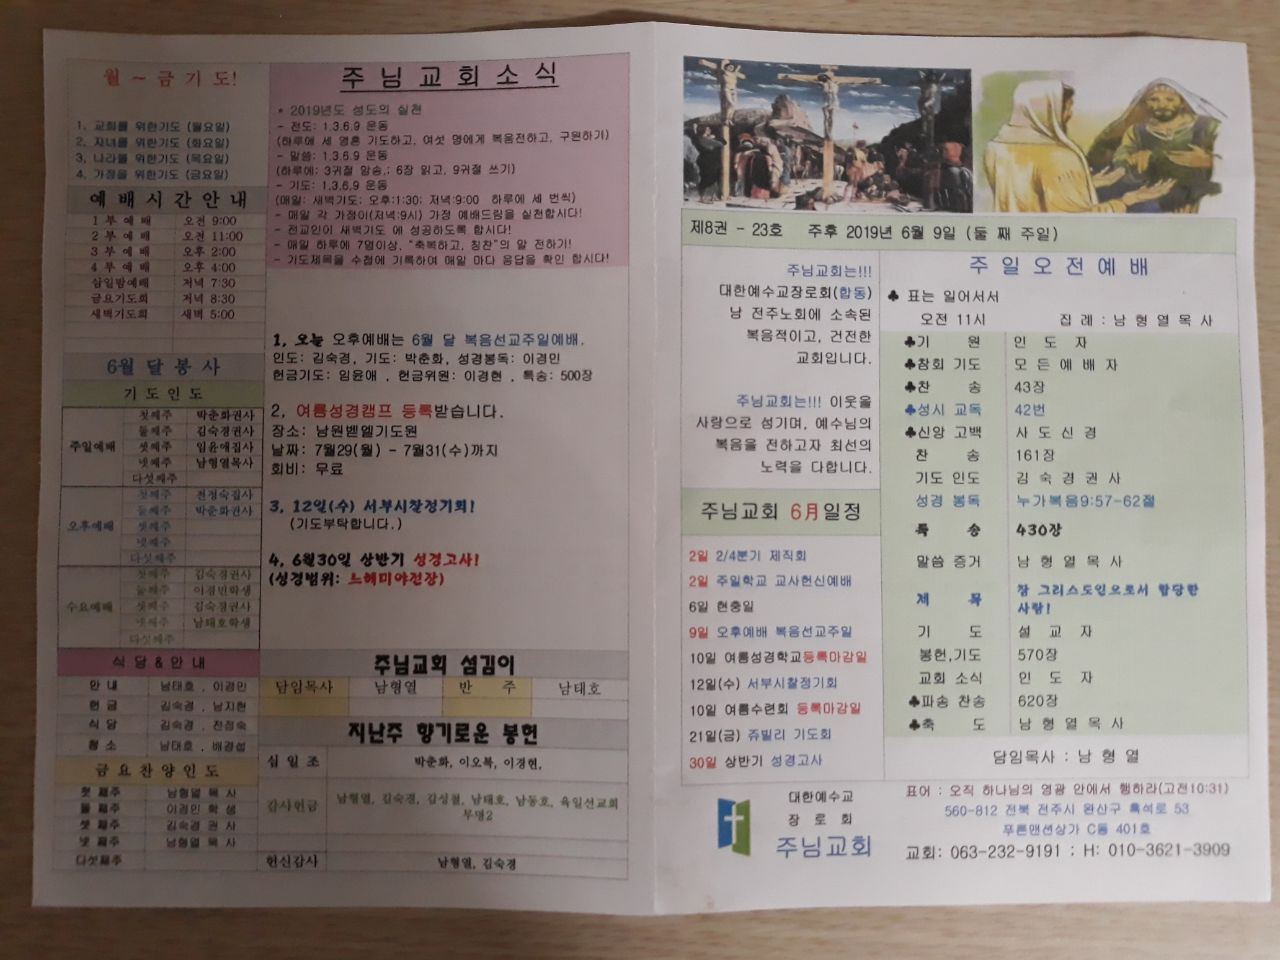 월 ~ 금기도!
1. 교회를 위한기도 (월요일)
2. 자녀를 위한기도 (화요일)
3. 나라를 위한기도 (목요일)
4. 가정을 위한기도 (금요일)
예배시간안내
1 부 예 배 오전 9:00
2 부 예 배 오전 11:00
3 부 예 배 오후 2:00
4 부 예 배 오후 4:00
삼일밤예배 저녁 7:30
금요기도회 저녁 8:30
새벽기도회 새벽 5:00
6월 달 봉사
기 도 인 도
주일예배
첫째주 박춘화권사
둘째주 김숙경권사
셋째주 임윤애집사
넷째주 남형열목사
다섯째주
오후예배
첫째주 전정숙집사
둘째주 박춘화권사
셋째주
넷째주
다섯째주
수요예배
첫째주 김숙경권사
둘째주 이경민학생
셋째주 김숙경권사
넷째주 남태호학생
다섯째주
식 당 & 안 내
안 내 남태호 , 이경민
헌 금 김숙경 , 남지현
식 당 김숙경 , 전정숙
청 소 남태호 , 배경섭
금요찬양인도
첫 째주 남형열 목 사
둘 째주 이경민 학 생
셋 째주 김숙경 권 사
넷 째주 남형열 목 사
다섯째주
주님교회소식
* 2019년도 성도의 실천
- 전도: 1.3.6.9 운동
(하루에 세 영혼 기도하고, 여섯 명에게 복음전하고, 구원하기)
- 말씀: 1.3.6.9 운동
(하루에: 3귀절 암송,: 6장 읽고, 9귀절 쓰기)
- 기도: 1.3.6.9 운동
(매일: 새벽기도: 오후:1:30; 저녁:9:00 하루에 세 번씩)
- 매일 각 가정이(저녁:9시) 가정 예배드림을 실천합시다!
- 전교인이 새벽기도 에 성공하도록 합시다!
- 매일 하루에 7명이상, "축복하고, 칭찬"의 말 전하기!
- 기도제목을 수첩에 기록하여 매일 마다 응답을 확인 합시다!
1, 오늘 오후예배는 6월 달 복음선교주일예배.
인도: 김숙경, 기도: 박춘화, 성경봉독: 이경민
헌금기도: 임윤애 , 헌금위원: 이경현 , 특송: 500장
2, 여름성경캠프 등록받습니다.
장소: 남원벧엘기도원
날짜: 7월29(월) - 7월31(수)까지
회비: 무료
3, 12일(수) 서부시찰정기회!
(기도부탁합니다.)
4, 6월30일 상반기 성경고사!
(성경범위: 느헤미야전장)
주님교회 섬김이
담임목사 남형열 반 주 남태호
지난주 향기로운 봉헌
십 일 조 박춘화, 이오복, 이경현,
감사헌금 남형열, 김숙경, 김성철, 남태호, 남동호, 육일선교회
무명2
헌신감사 남형열, 김숙경
제8권 - 23호 주후 2019년 6월 9일 (둘 째 주일)
주님교회는!!!
대한예수교장로회(합동)
낭 전주노회에 소속된
복음적이고, 건전한
교회입니다.
주님교회는!!! 이웃을
사랑으로 섬기며, 예수님의
복음을 전하고자 최선의
노력을 다합니다.
주님교회 6月일정
2일 2/4분기 제직회
2일 주일학교 교사헌신예배
6일 현충일
9일 오후예배 복음선교주일
10일 여름성경학교등록마감일
12일(수) 서부시찰정기회
10일 여름수련회 등록마감일
21일(금) 쥬빌리 기도회
30일 상반기 성경고사
대한예수교
장 로 회
주님교회
주일오전예배
♣ 표는 일어서서
오전 11시 집 례 : 남 형 열 목 사
♣기 원 인 도 자
♣참회 기도 모 든 예 배 자
♣찬 송 43장
♣성시 교독 42번
♣신앙 고백 사 도 신 경
찬 송 161장
기도 인도 김 숙 경 권 사
성경 봉독 누가복음9:57-62절
특 송 430장
말씀 증거 남 형 열 목 사
제 목 참 그리스도인으로서 합당한
사람!
기 도 설 교 자
봉헌,기도 570장
교회 소식 인 도 자
♣파송 찬송 620장
♣축 도 남 형 열 목 사
담임목사 : 남 형 열
표어 : 오직 하나님의 영광 안에서 행하라(고전10:31)
560-812 전북 전주시 완산구 흑석로 53
푸른맨션상가 C동 401호
교회: 063-232-9191 ; H: 010-3621-3909